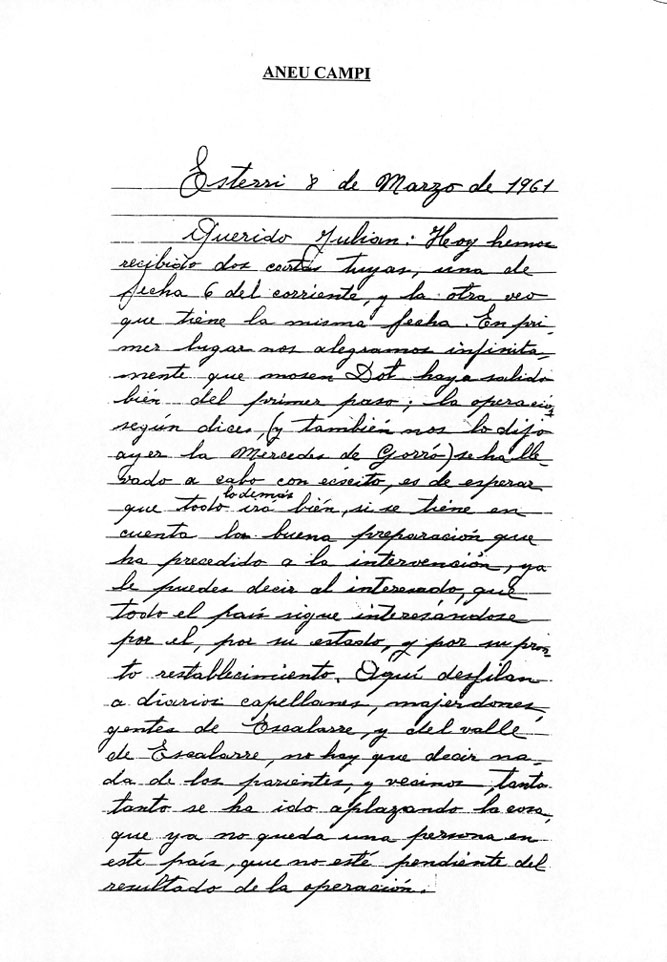 ANEU CAMPI
Esterri 8 de Marzo de 1961
Querido Julian: Hoy hemos
recibido dos cartas tuyas, una de
fecha 6 del corriente, y la otra veo
que tiene la misma fecha. En pri-
mer lugar nos alegramos infinita-
mente que mosen Dot haya salido
bién del primer paso; la operación
según dices, (y también nos lo dijo
ayer la Mercedes de Gorró) se ha lle-
vado a cabo con ecseito, es de esperar
que todo lo demás irá bién, si se tiene en
cuenta la buena preparación que
ha precedido a la intervención, ya
le puedes decir al interesado, que
todo el país sigue interesándose
por el, por su estado, y por su pron-
to restablecimiento. Aquí desfilan
a diarios capellanes, majerdones,
gentes de Escalarre, y del valle
de Escalarre, no hay que decir na-
da de los parientes, y vecinos, tanto
tanto se ha ido aplazando la cosa,
que ya no queda una persona en
este país, que no esté pendiente del
resultado de la operación.